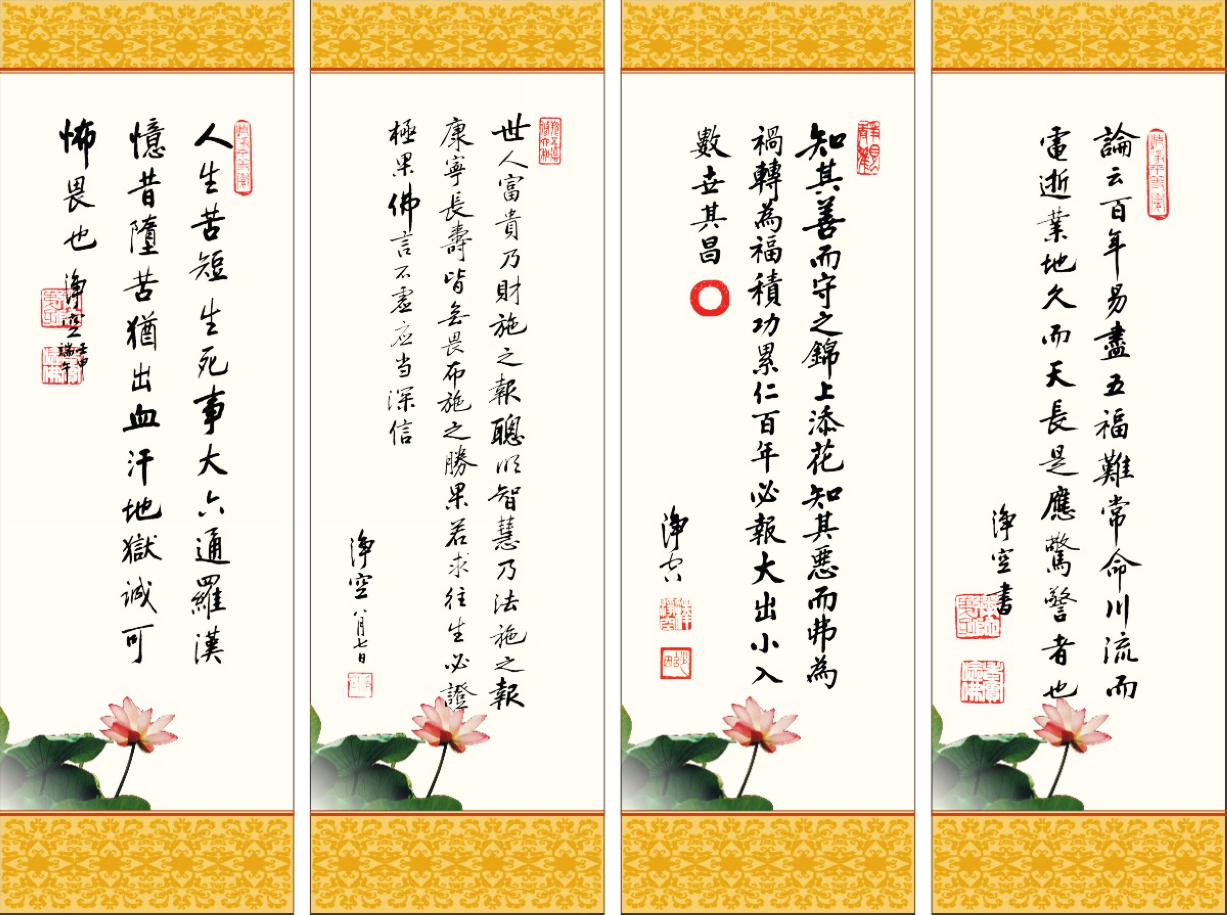 論云百年易盡五福難常命川流而
電逝業地久而天長是應驚警者也
淨空書
知其善而守之錦上添花知其惡而弗為
禍轉為福積功累仁百年必報大出小入
數世其昌
淨空
世人富貴乃財施之報聰明智慧乃法施之報
康寧長壽皆無畏布施之勝果若求往生必證
極果佛言不虛应当深信
淨空八月七日
人生苦短生死事大六通羅漢
憶昔墮苦猶出血汗地獄誠可
怖畏也
淨空
壬申
瑞午